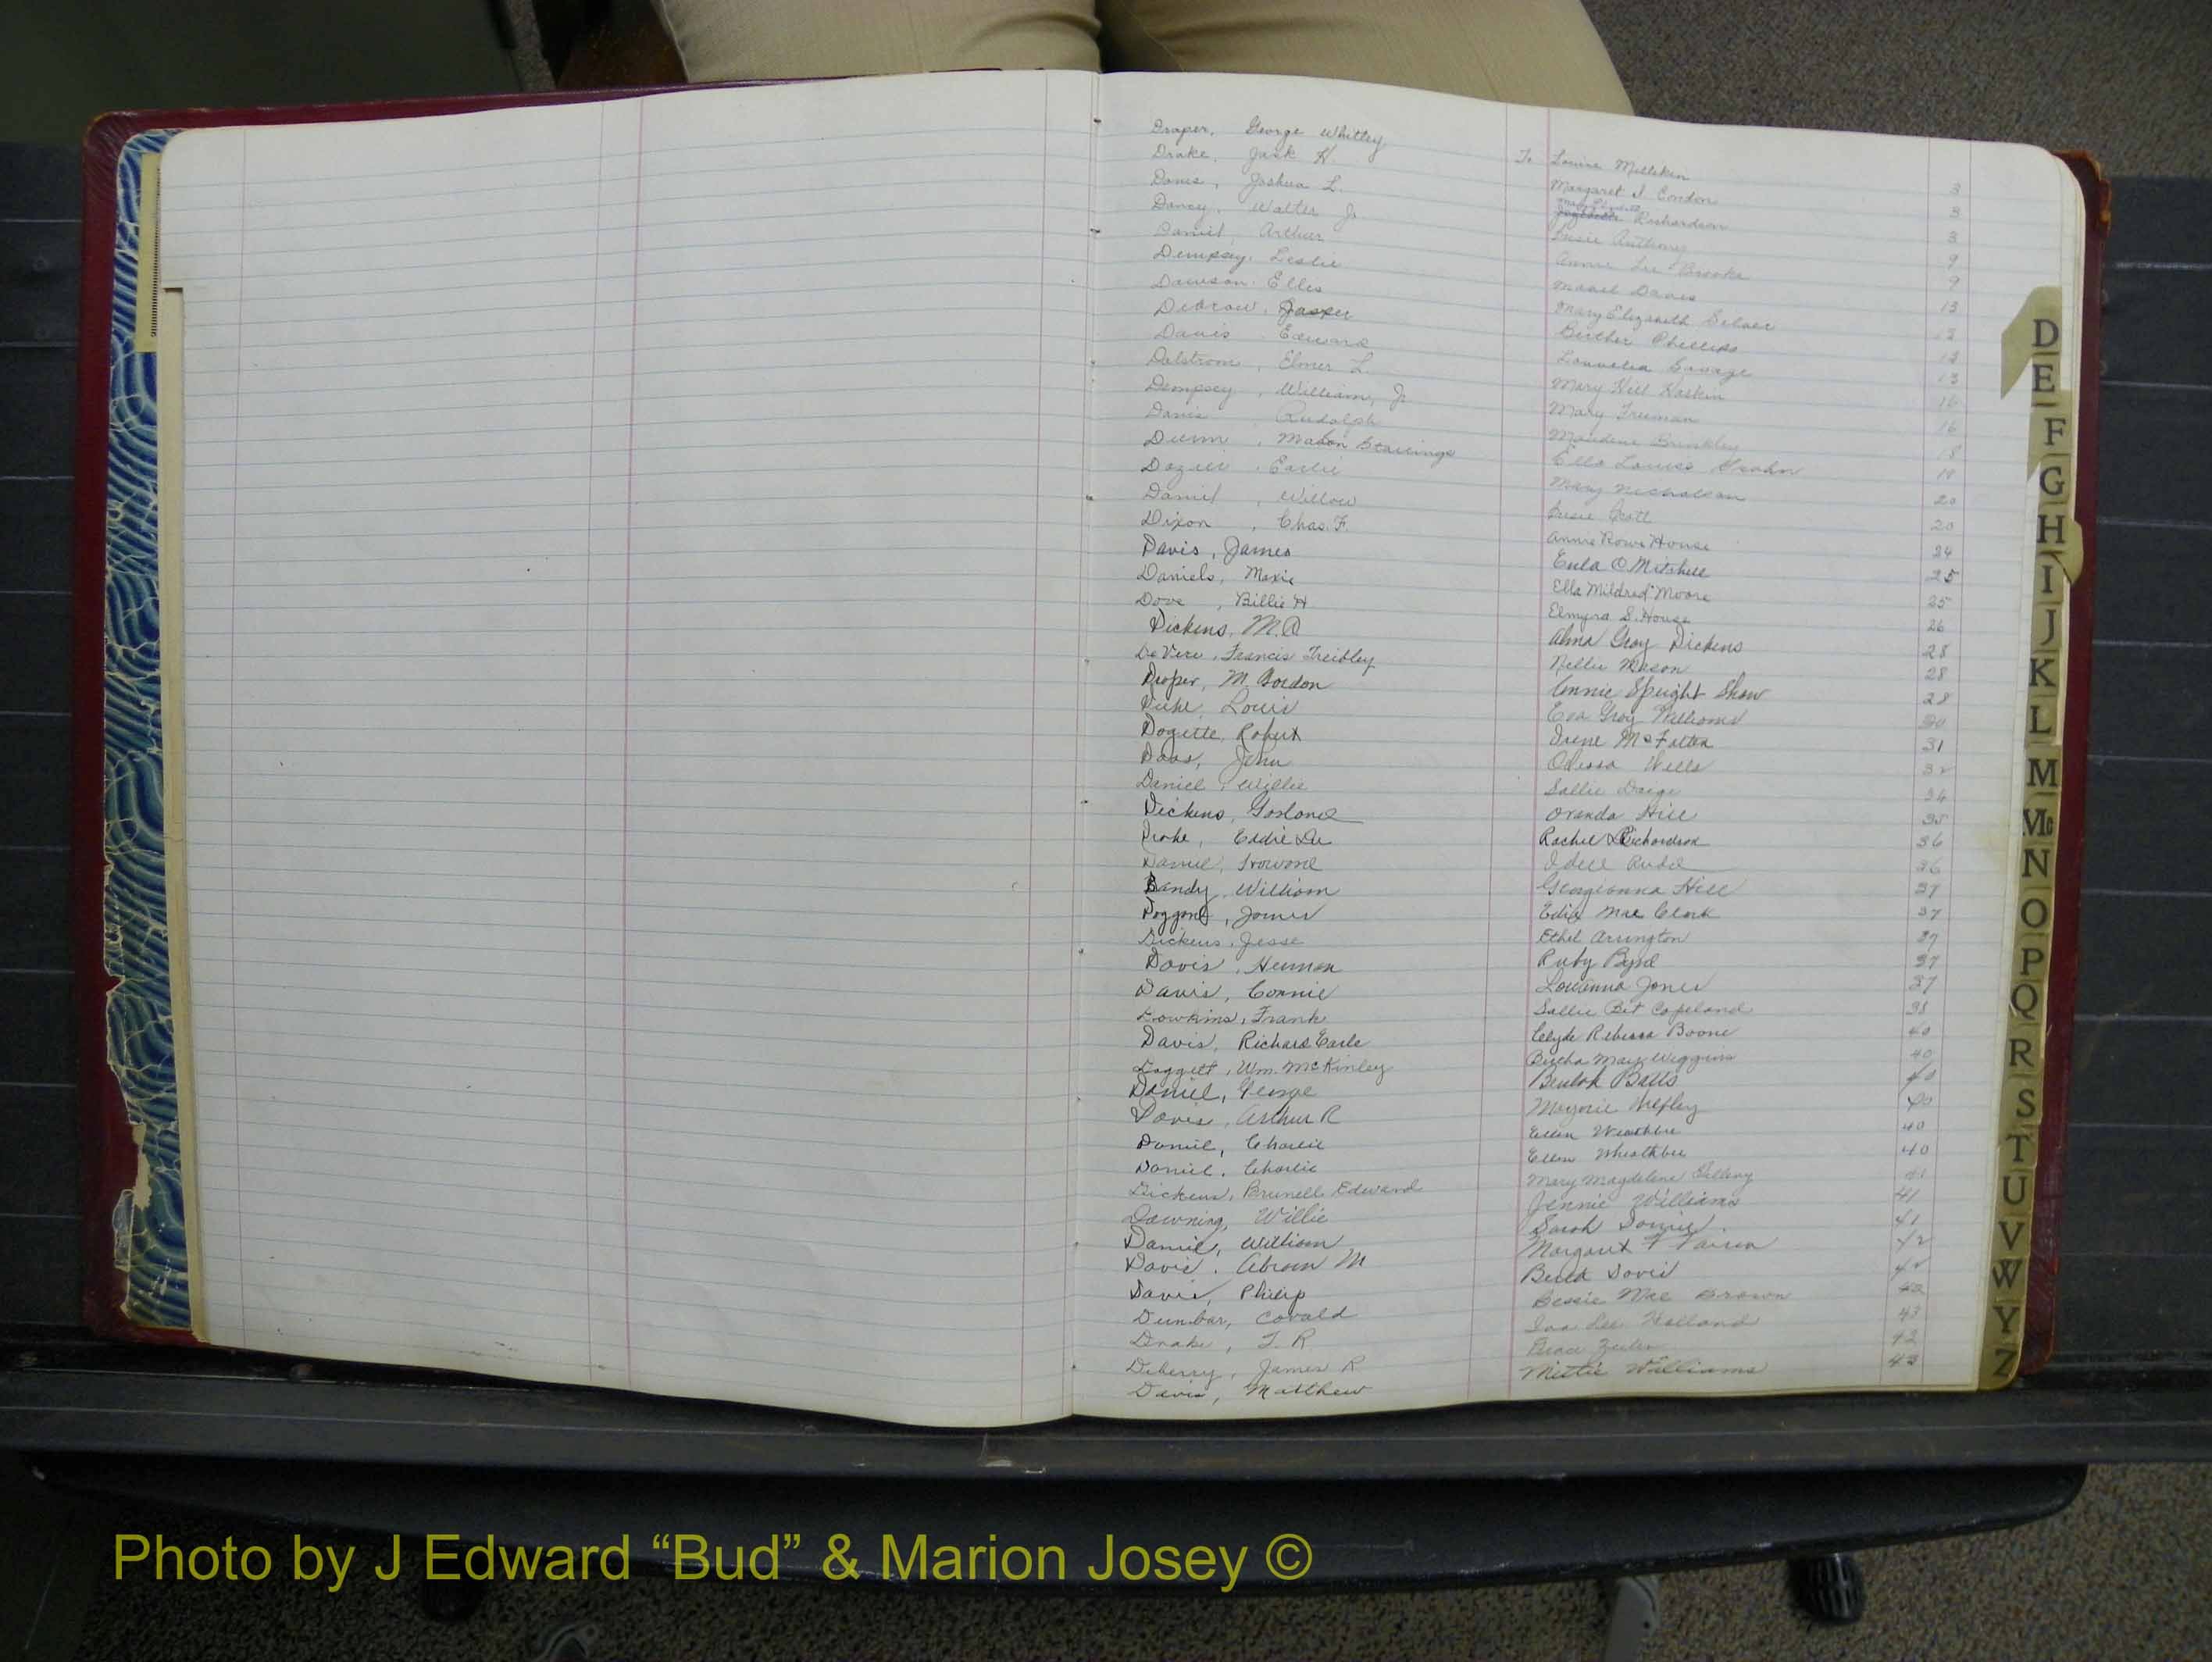 Draper, George Whitley To Louise Milliken 3
Drake, Jack H. Margaret I. Condon 3
Davis, Joshua L. Richardson 3
Darcy, Walter Jr Susie Anthony 9
Daniel, Arthur Annie Lee Brooks 9
Dempsey, Leslie Mabel Davis 13
Dawson, Elles Mary Elizabeth Silver
Jasper Phillips
Davis Edward Savage 13
Dalstrom, Elmer L. Mary Hill Haskin 16
Dempsey, William, Jr Mary Freeman 16
Davis Rudolph Maudene Brinkley 18
Dunn, Mabon Ella Louise
Dozier, Earlie Mary Nicholson 20
Daniel, Willow Susie Scott 20
Dixon, Chas. F. Annie Rowe House 24
Davis, James Eula O Mitchell 25
Daniels, Moxie Ella Mildred Moore 25
Dove, Billie H Elmyra S. House 26
Dickens, M.A Alma Gray Dickens 28
DeVere, Francis Treibley Nellie Mason 28
Draper, M. Gordon Annie Speight Shaw 28
Louis Eva Gray Williams
Doggette, Robert Irene McFatter 31
John Odessa Wells 32
Daniel, Willie Sallie 34
Dickens, Garland Oranda Hill 35
Drake, Eddie Lee Rachel Richardson 36
Daniel, Howard Idell 36
Bandy, William Georgeanna Hill 37
Doggond, James Edie Mae Clark 37
Dickens, Jesse Ethel Arrington 37
Davis, Herman Ruby Byrd 37
Davis, Connie Louvinna Jones 37
Dowkins, Frank Sallie Bet Copeland 38
Davis, Richard Earle Clyde Rebecca Boone 40
Doggett, Wm. McKinley Bertha Mae Wiggins 40
Daniel, George Beulah Batts 40
Davis, Arthur R Marjorie 40
Daniel, Charlie Ellen 40
Daniel, Charlie Ellen Wheathbee 40
Dickens, Brunell Edward Mary Magdalene 41
Downing, Willie Jennie Williams 41
Daniel, William Sarah Daniel 41
Davis, Abram M Margaret F 42
Davis, Philip Davis
Dunbar, Covald Bessie Mae Brown 42
Drake, T. R Iva Lee Holland 43
Deberry, James R 42
Davis, Matthew Mittie Williams 43
D
E
F
G
H
I
J
K
L
M
Mc
N
O
P
Q
R
S
T
U
V
W
Y
Z
Photo by J Edward “Bud” & Marion Josey ©